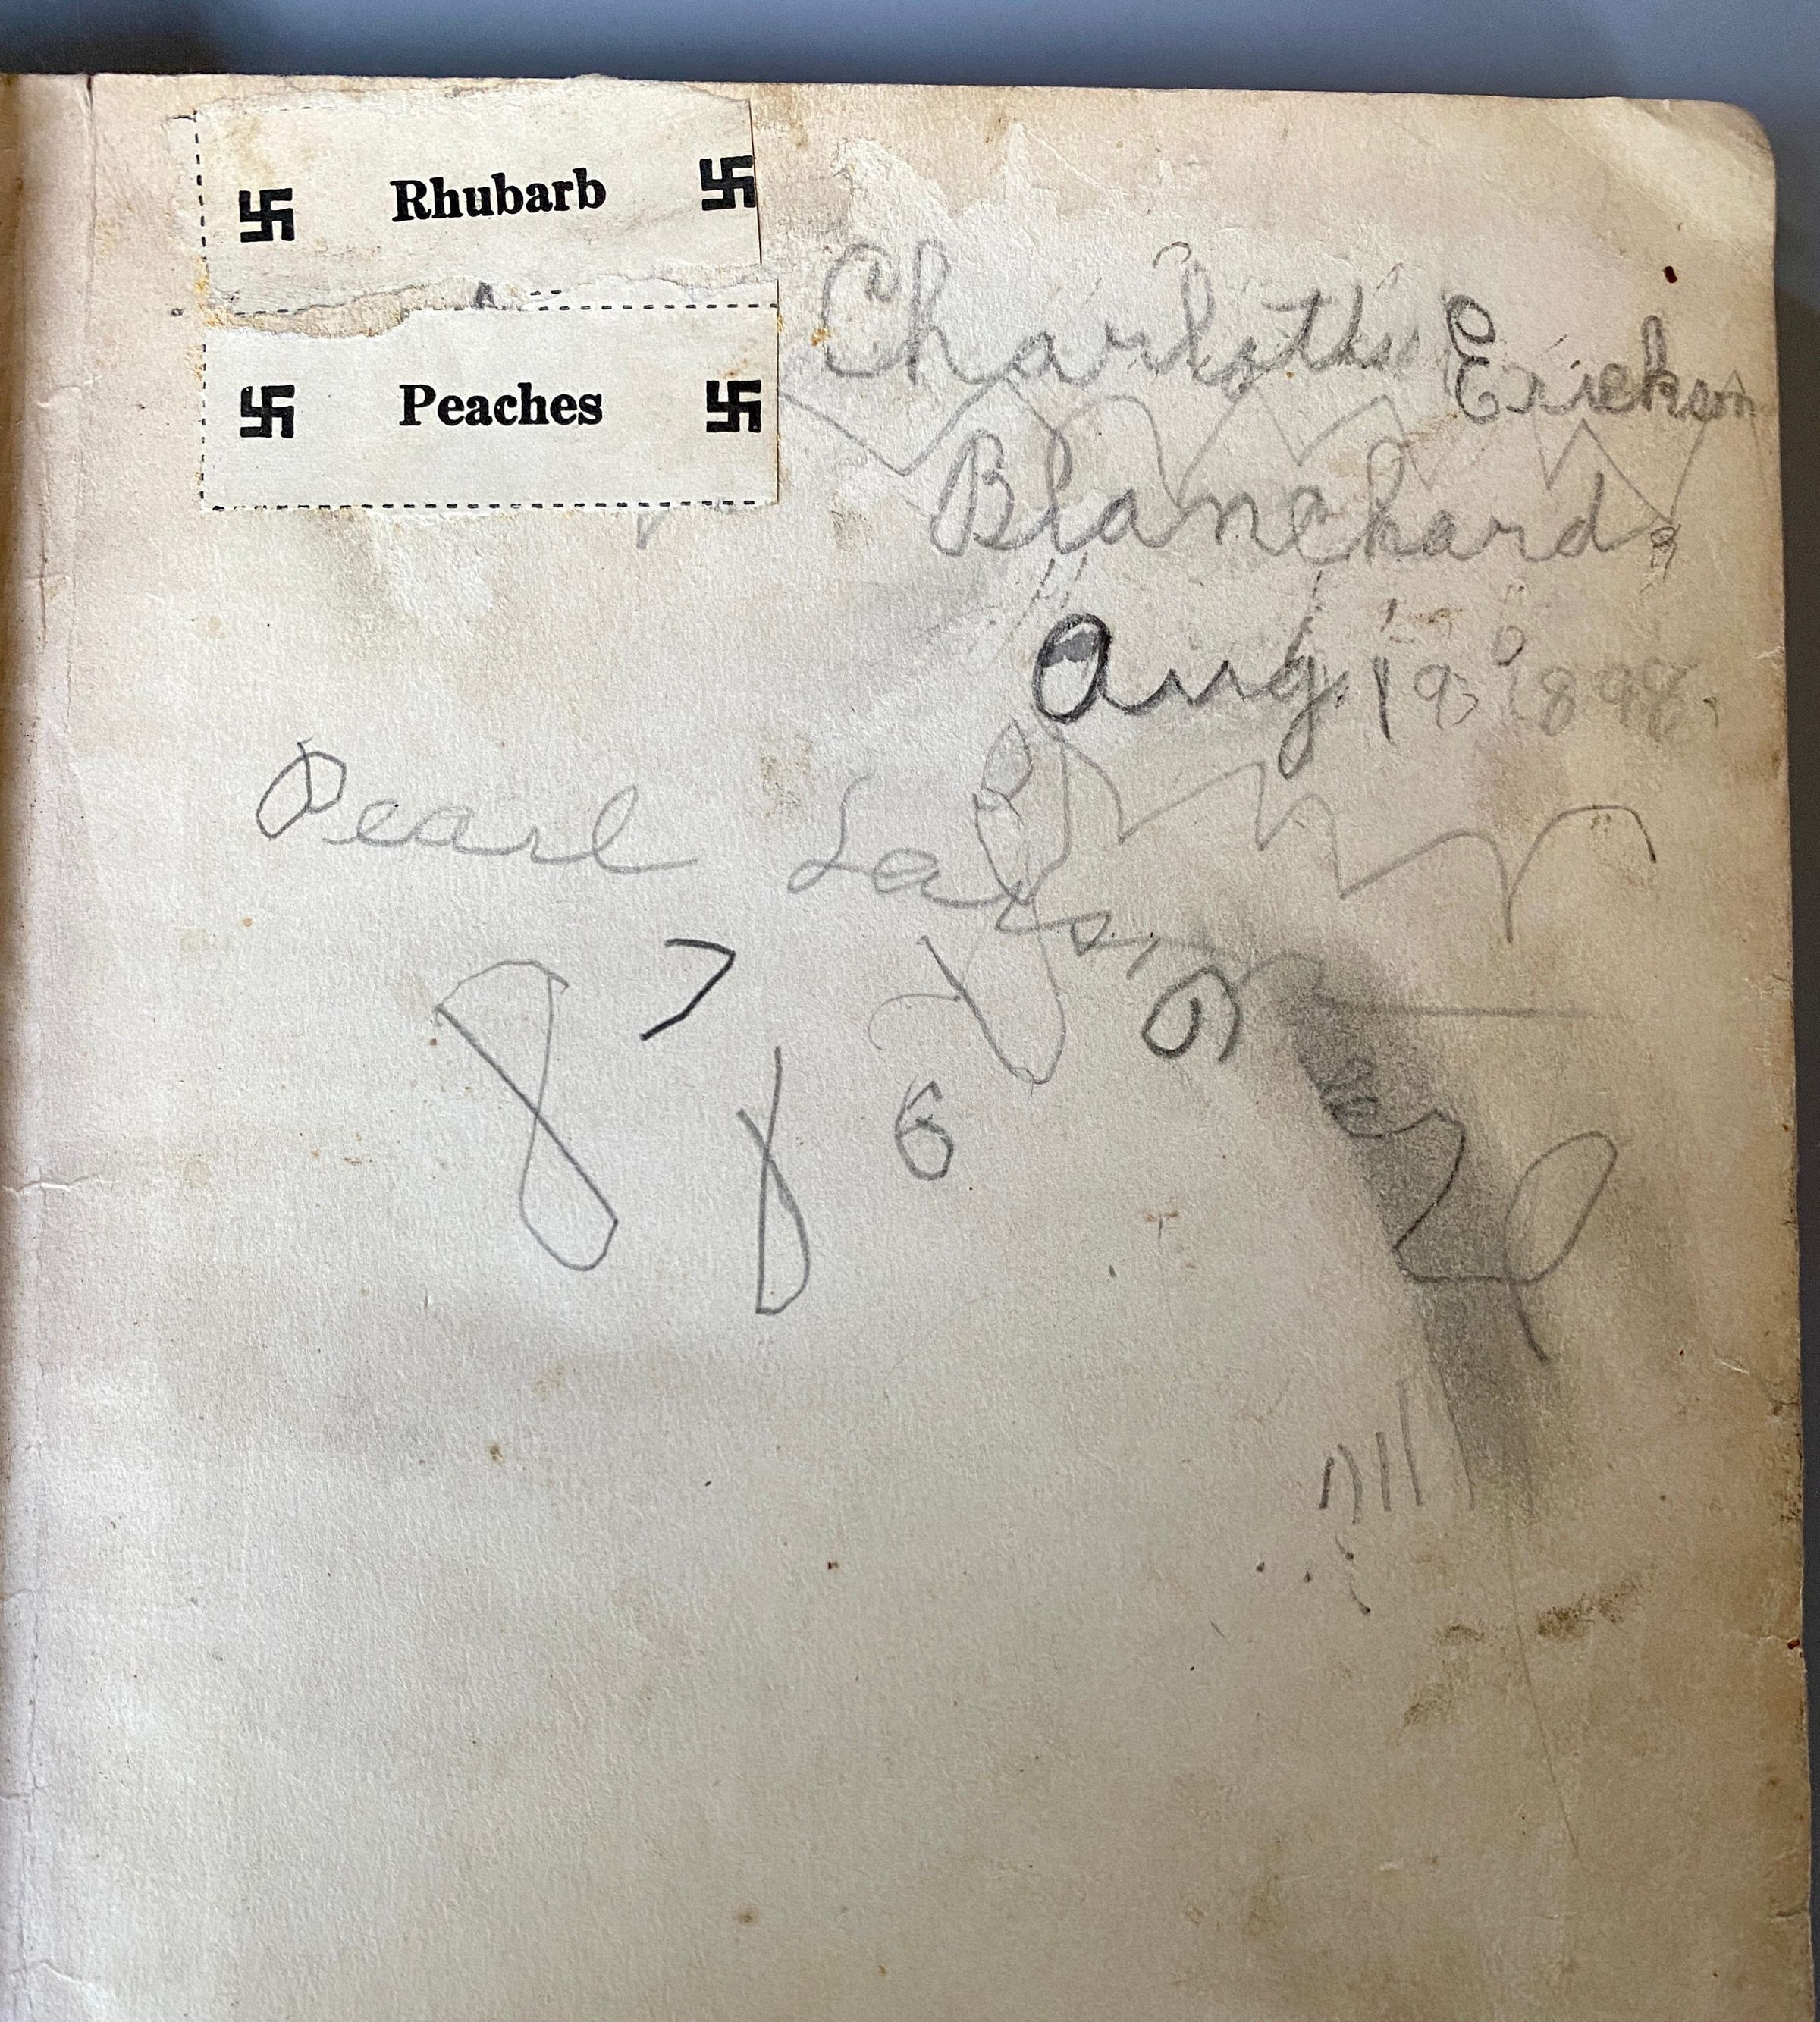 卐 Rhubarb 卐
卐 Peaches 卐
Charlotte Erickson
Blanchard
Aug. 19, 1898.
Pearl Larson
8 7 8 6